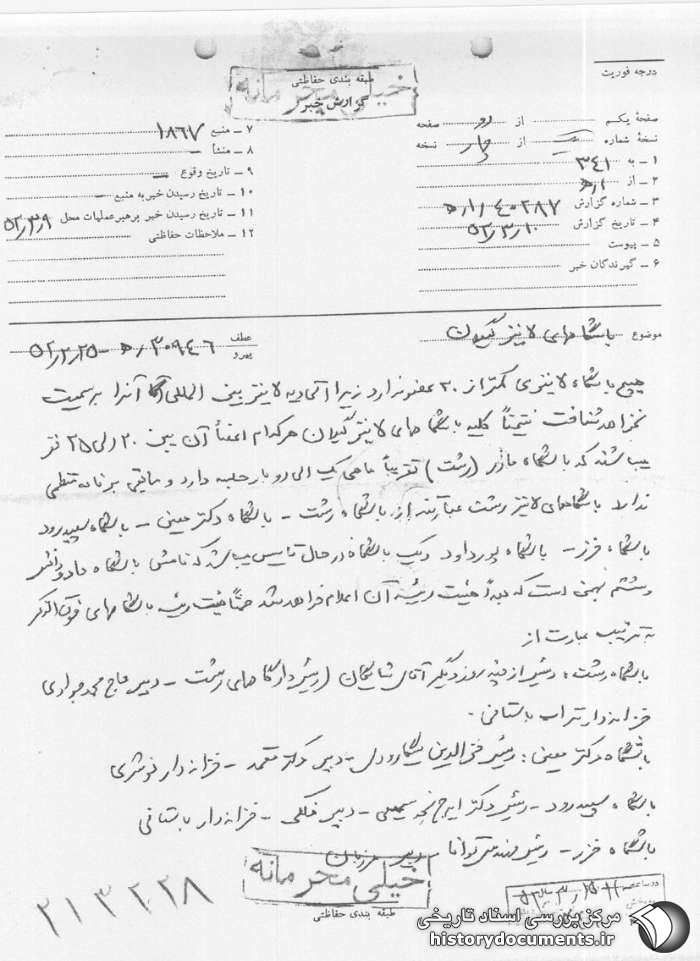 درجه فوریت
طبقه بندی حفاظتی
خیلی محرمانه
گزارش خبر
صفحهٔ یکم از دو صفحه
نسخهٔ شماره یک از چهار نسخه
۱ ـ به ۳۴۱
۲ ـ از ۱ﻫ
۳ ـ شماره گزارش ۴۰۲۸۷/۱ﻫ
۴ ـ تاریخ گزارش ۵۲/۳/۱۰
۵ ـ پیوست
۶ ـ گیرندگان خبر
۷ ـ منبع ۱۸۶۷
۸ ـ منشأ ـ
۹ ـ تاریخ وقوع ـ
۱۰ ـ تاریخ رسیدن خبر به منبع ـ
۱۱ ـ تاریخ رسیدن خبر برهبر عملیات محل ۵۲/۳/۹
۱۲ ـ ملاحظات حفاظتی
موضوع باشگاههای لاینز گیلان
عطف
پیرو ۳۰۹۴۶/ﻫ ـ ۵۲/۲/۲۵
هیچ باشگاه لاینزی کمتر از ۲۰ عضو ندارد زیرا اتحادیه لاینز بین المللی آنرا برسمیت
نخواهد شناخت نتیجتاً کلیه باشگاههای لاینز گیلان هرکدام اعضاً آن بین ۲۰ الی ۲۵ نفر
میباشند که باشگاه مادر (رشت) تقریباً ماهی یک الی دو بار جلسه دارد و مابقی برنامه منظمی
ندارد باشگاههای لاینز رشت عبارتند از، باشگاه رشت ـ باشگاه دکتر معینی ـ باشگاه سپیدرود
باشگاه خزر ـ باشگاه پورداود و یک باشگاه در حال تاسیس میباشد که نامش باشگاه
و ششم بهمن است که بعداً هیئت رئیسه آن اعلام خواهد شد ضمناً هیئت رئیسه باشگاههای فوق الذکر
به ترتیب عبارت از
باشگاه رشت، رئیس از چند روز دیگر آقای شایگان (رئیس دادگاههای رشت ـ دبیر حاج محمد جوادی
خزانه دار تراب باستانی .
باشگاه دکتر معینی : رئیس فخرالدین ـ دبیر دکتر معتمد ـ خزانه دار خوشری
باشگاه سپیدرود ـ رئیس دکتر ایرج سمیعی ـ دبیر فلکی ـ خزانه دار باستانی
باشگاه خزر ـ رئیس مهندس توانا ـ دبیر مرزبان
خیلی محرمانه
طبقه بندی حفاظتی
۲۱۳۲۲۸
مرکز بررسی اسناد تاریخی
historydocuments.ir